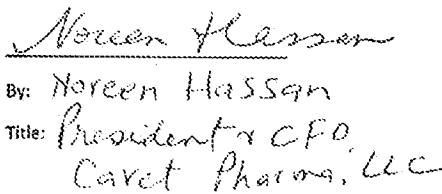 Noreen Hassan
By: Noreen Hassan
Title: President & CFO
Cavet Pharma, LLC